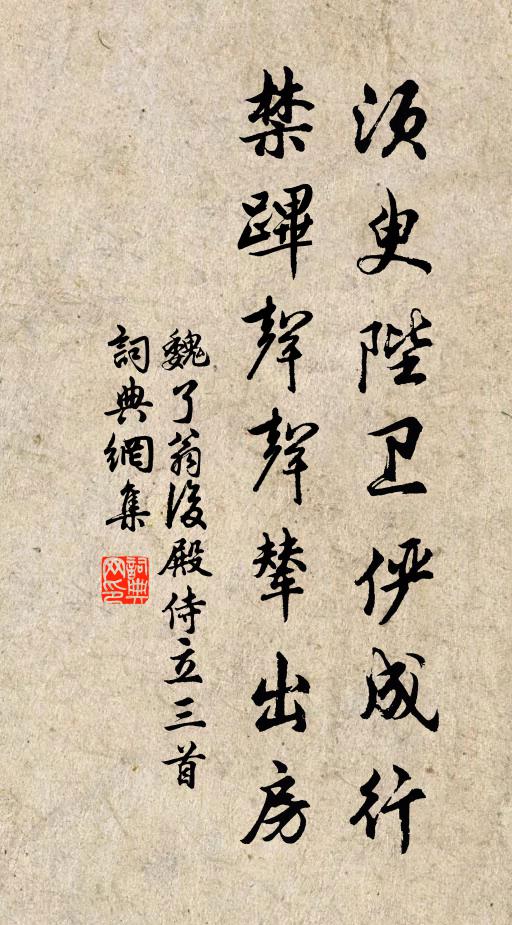 須臾陛卫俨成行
禁蹕聲聲辇出房
魏了翁後殿侍立三首
詞典網集
詞典網印